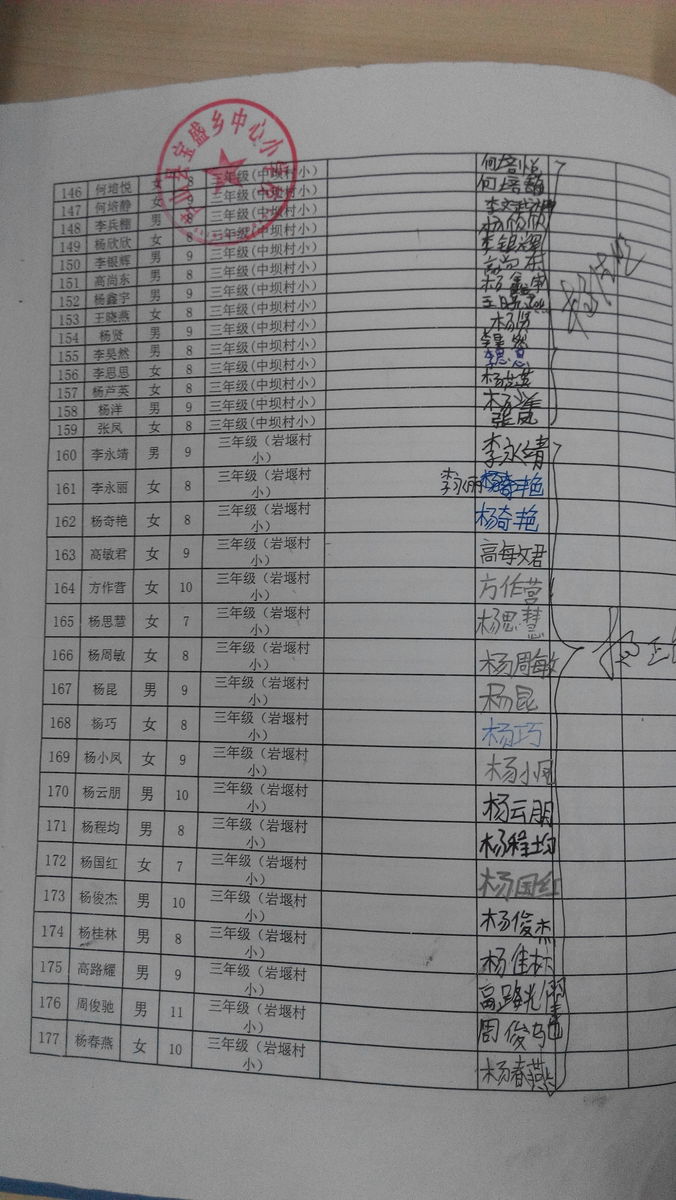 县宝盛乡中心小学
146 何培悦 女 8 三年级(中坝村小) 何培悦
147 何培静 女 9 三年级(中坝村小) 何培静
148 李兵棚 男 8 三年级(中坝村小)
149 杨欣欣 女 8 三年级(中坝村小) 杨欣欣
150 李银辉 男 9 三年级(中坝村小) 李银辉
151 高尚东 男 8 三年级(中坝村小) 高尚东
152 杨鑫宇 男 9 三年级(中坝村小) 杨鑫宇
153 王晓燕 女 8 三年级(中坝村小) 王晓燕
154 杨贤 男 9 三年级(中坝村小) 杨贤
155 李昊然 男 8 三年级(中坝村小) 李昊然
156 李思思 女 8 三年级(中坝村小) 李思思
157 杨芦英 女 8 三年级(中坝村小) 杨芦英
158 杨洋 男 9 三年级(中坝村小) 杨洋
159 张凤 女 8 三年级(中坝村小) 张凤
160 李永靖 男 9 三年级（岩堰村小） 李永靖
161 李永丽 女 8 三年级（岩堰村小） 李永丽 杨奇艳
162 杨奇艳 女 8 三年级（岩堰村小） 杨奇艳
163 高敏君 女 9 三年级（岩堰村小） 高敏君
164 方作营 女 10 三年级（岩堰村小） 方作营
165 杨思慧 女 7 三年级（岩堰村小） 杨思慧
166 杨周敏 女 8 三年级（岩堰村小） 杨周敏
167 杨昆 男 9 三年级（岩堰村小） 杨昆
168 杨巧 女 8 三年级（岩堰村小） 杨巧
169 杨小凤 女 9 三年级（岩堰村小） 杨小凤
170 杨云朋 男 10 三年级（岩堰村小） 杨云朋
171 杨程均 男 8 三年级（岩堰村小） 杨程均
172 杨国红 女 7 三年级（岩堰村小） 杨国红
173 杨俊杰 男 10 三年级（岩堰村小） 杨俊杰
174 杨桂林 男 8 三年级（岩堰村小） 杨佳林
175 高路耀 男 9 三年级（岩堰村小） 高路耀
176 周俊驰 男 11 三年级（岩堰村小） 周俊驰
177 杨春燕 女 10 三年级（岩堰村小） 杨春燕